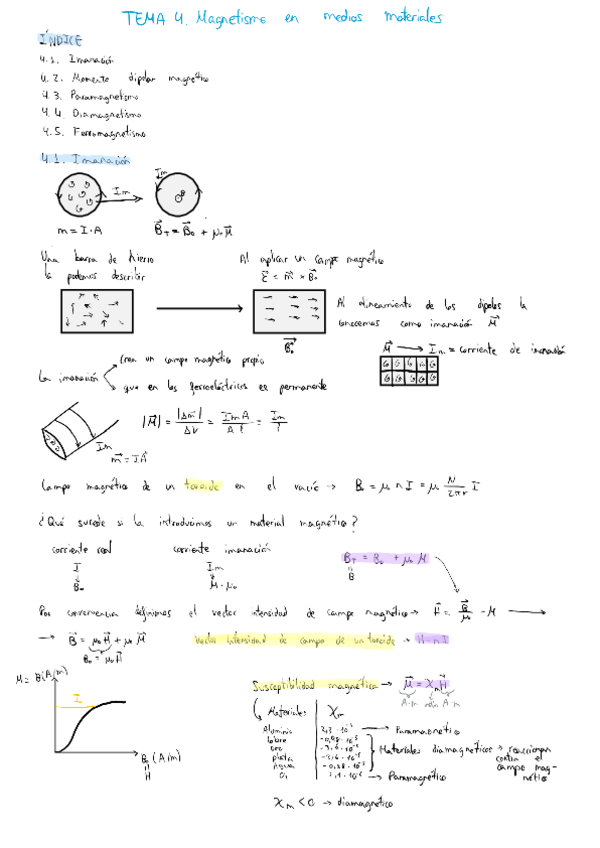 TEMA 4. Magnetismo en medios materiales
ÍNDICE
4.1. Imanación
4.2. Momento dipolar magnético
4.3. Paramagnetismo
4.4. Diamagnetismo
4.5. Ferromagnetismo
4.1. Imanación
Im
Im
m = I·A
B⃗T = B⃗o + μo M⃗
Una barra de hierro
la podemos describir
Al aplicar un campo magnético
B⃗o
Al alineamiento de los dipolos la
conocemos como imanación M⃗
M⃗ → Im = corriente de imanación
La imanación
crea un campo magnético propio
que en los ferroeléctricos es permanente
Im
m⃗ = IA⃗
|M⃗| = |Δm⃗| / ΔV = ImA / Aℓ = Im / ℓ
Campo magnético de un toroide en el vacío → B = μ n I = μ N/2πr I
¿Qué sucede si la introducimos un material magnético?
corriente real
corriente imanación
I
Im
Bo
M·μo
BT = Bo + μo M
B
Por conveniencia definimos el vector intensidad de campo magnético → H⃗ = B⃗/μo - M →
→ B⃗ = μo H⃗ + μo M⃗
Bo = μo H⃗
Vector intensidad de campo de un toroide → H = n I
I
H
Susceptibilidad magnética → M⃗ = χm H⃗
Materiales
χm
Aluminio
Cobre
oro
plata
Agua
Paramagnético
Materiales diamagnéticos → reaccionan
contra el
campo mag-
nético
Paramagnético
χm < 0 → diamagnético